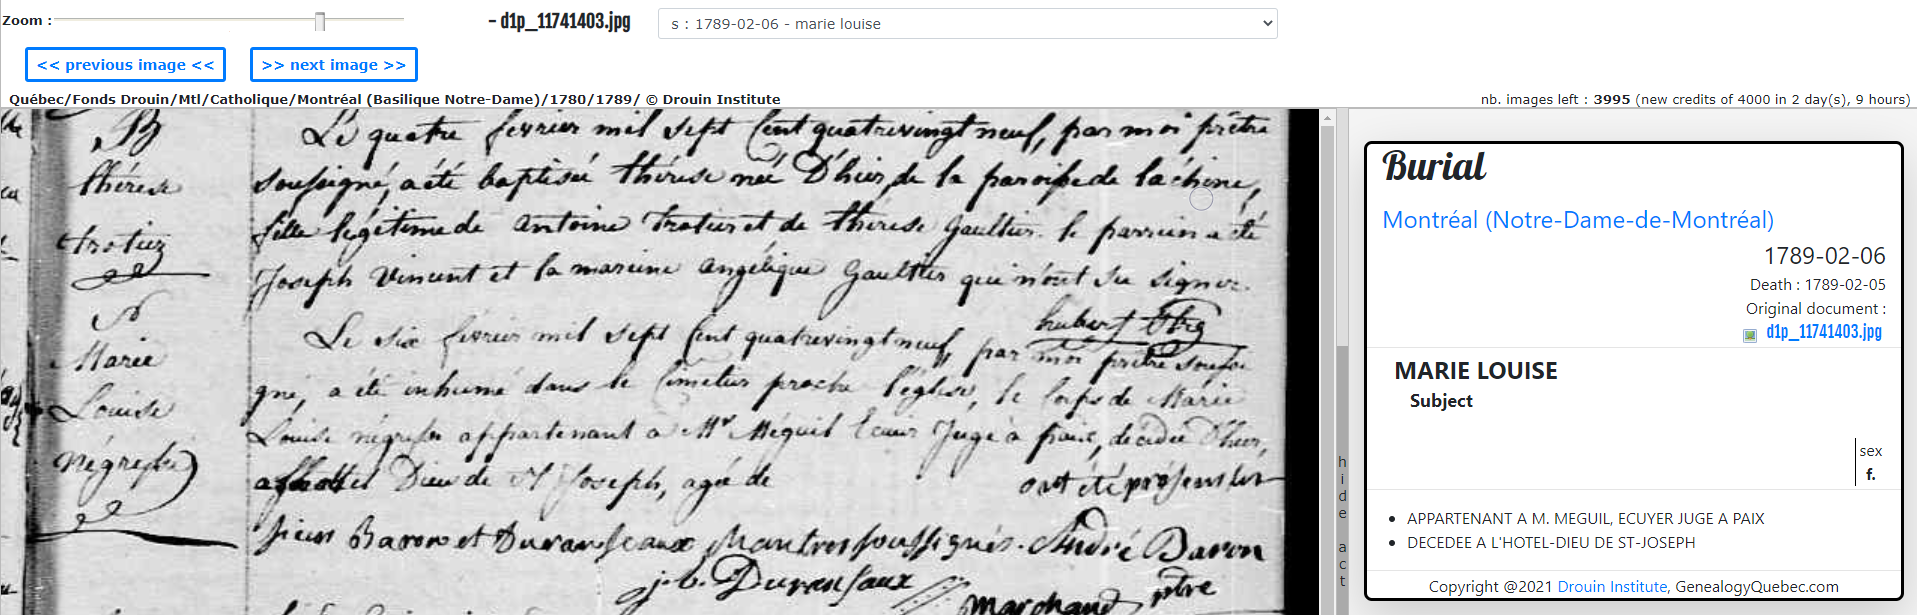 Zoom :
- d1p_11741403.jpg
s : 1789-02-06 - marie louise
<< previous image <<
>> next image >>
Québec/Fonds Drouin/Mtl/Catholique/Montréal (Basilique Notre-Dame)/1780/1789/ © Drouin Institute
nb. images left : 3995 (new credits of 4000 in 2 day(s), 9 hours)
B
thérese
trotier
Le quatre fevrier mil sept Cent quatrevingt neuf, par moi prêtre
soussigné, a été baptisée thérese née D'hier, de la paroisse de lachine,
fille légitime de antoine trotier et de thérese Gaultier. le parrein a été
Joseph Vincent et la mareine angélique Gaultier qui n'ont su signer.
hubert ptre
S
Marie
Louise
négresse
Le six fevrier mil sept Cent quatrevingt neuf, par moi prêtre soussi
gné, a été inhumé dans le Cimetier proche l'église, le Corps de Marie
Louise négresse appartenant a Mr Méguil Ecuier Juge à paix, décédée D'hier,
a Dieu de St Joseph, agée de ont été présent les
sieurs Baron et Duranseaux Chantres soussignés. André Baron
j. b. Duransaux
Marchand ptre
hide act
Burial
Montréal (Notre-Dame-de-Montréal)
1789-02-06
Death : 1789-02-05
Original document :
d1p_11741403.jpg
MARIE LOUISE
Subject
sex
f.
APPARTENANT A M. MEGUIL, ECUYER JUGE A PAIX
DECEDEE A L'HOTEL-DIEU DE ST-JOSEPH
Copyright @2021 Drouin Institute, GenealogyQuebec.com